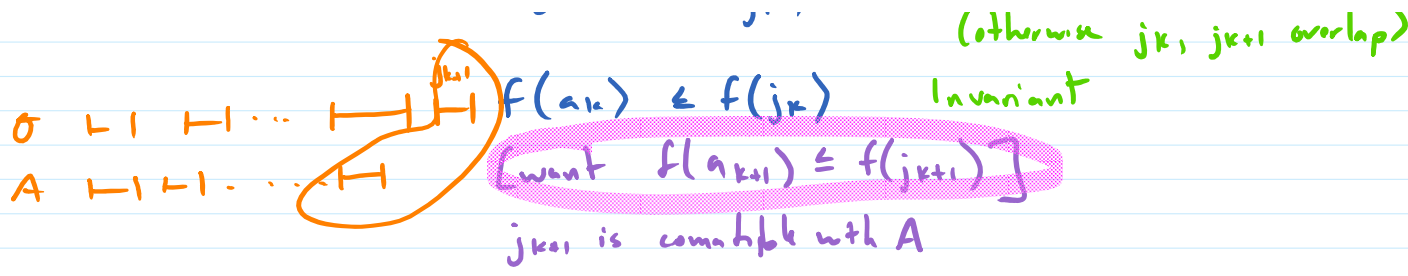 (otherwise jk, jk+1 overlap)
jk+1
f(ak) ≤ f(jk) Invariant
O ...
[want f(ak+1) ≤ f(jk+1)]
A ....
jk+1 is comatible with A